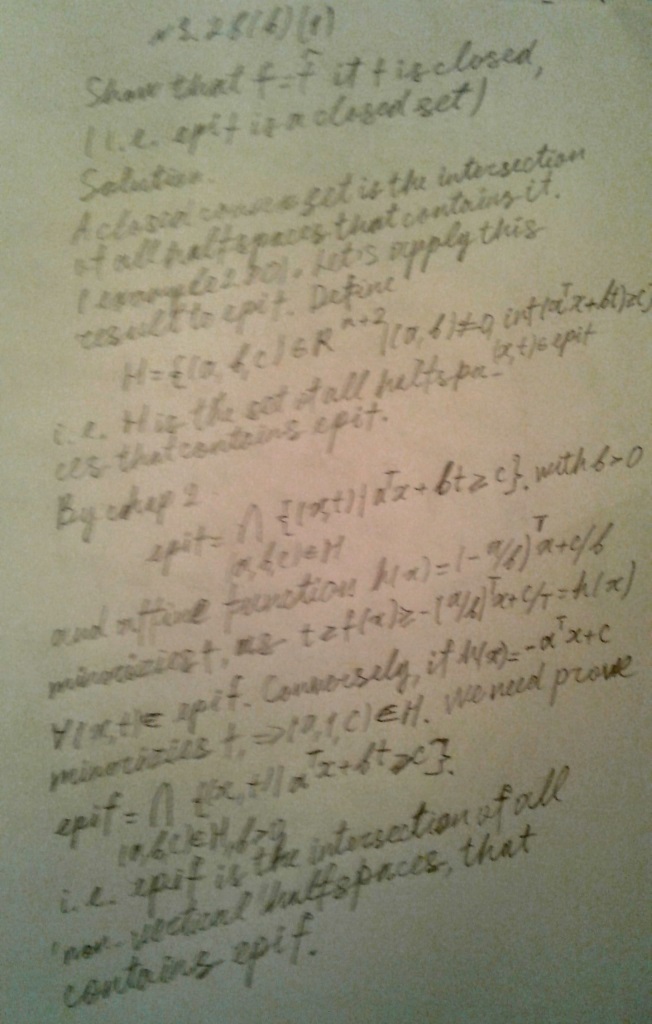 N3.28(b)(1)
Show that f = f̃ if f is closed,
(i.e. epif is a closed set)
Solution.
A closed convex set is the intersection
of all halfspaces that contains it.
(example 2.20). Let's apply this
result to epif. Define
H = {(a,b,c) ∈ R^{n+2} | (a,b) ≠ 0, inf (a^T x + bt) ≥ c}
(x,t) ∈ epif
i.e. H is the set of all halfspa-
ces that contains epif.
By chap 2
epif = ⋂ {(x,t) | a^T x + bt ≥ c}. with b > 0
(a,b,c) ∈ H
and affine function h(x) = (-a/b)^T x + c/b
minorizies f, as t ≥ f(x) ≥ -(a/b)^T x + c/T = h(x)
∀(x,t) ∈ epif. Conversely, if h(x) = -a^T x + c
minorizies f, ⇒ (a,1,c) ∈ H. We need prove
epif = ⋂ {(x,t) | a^T x + bt ≥ c}.
(a,b,c) ∈ H, b>0
i.e. epif is the intersection of all
'non-vertical' halfspaces, that
contains epif.